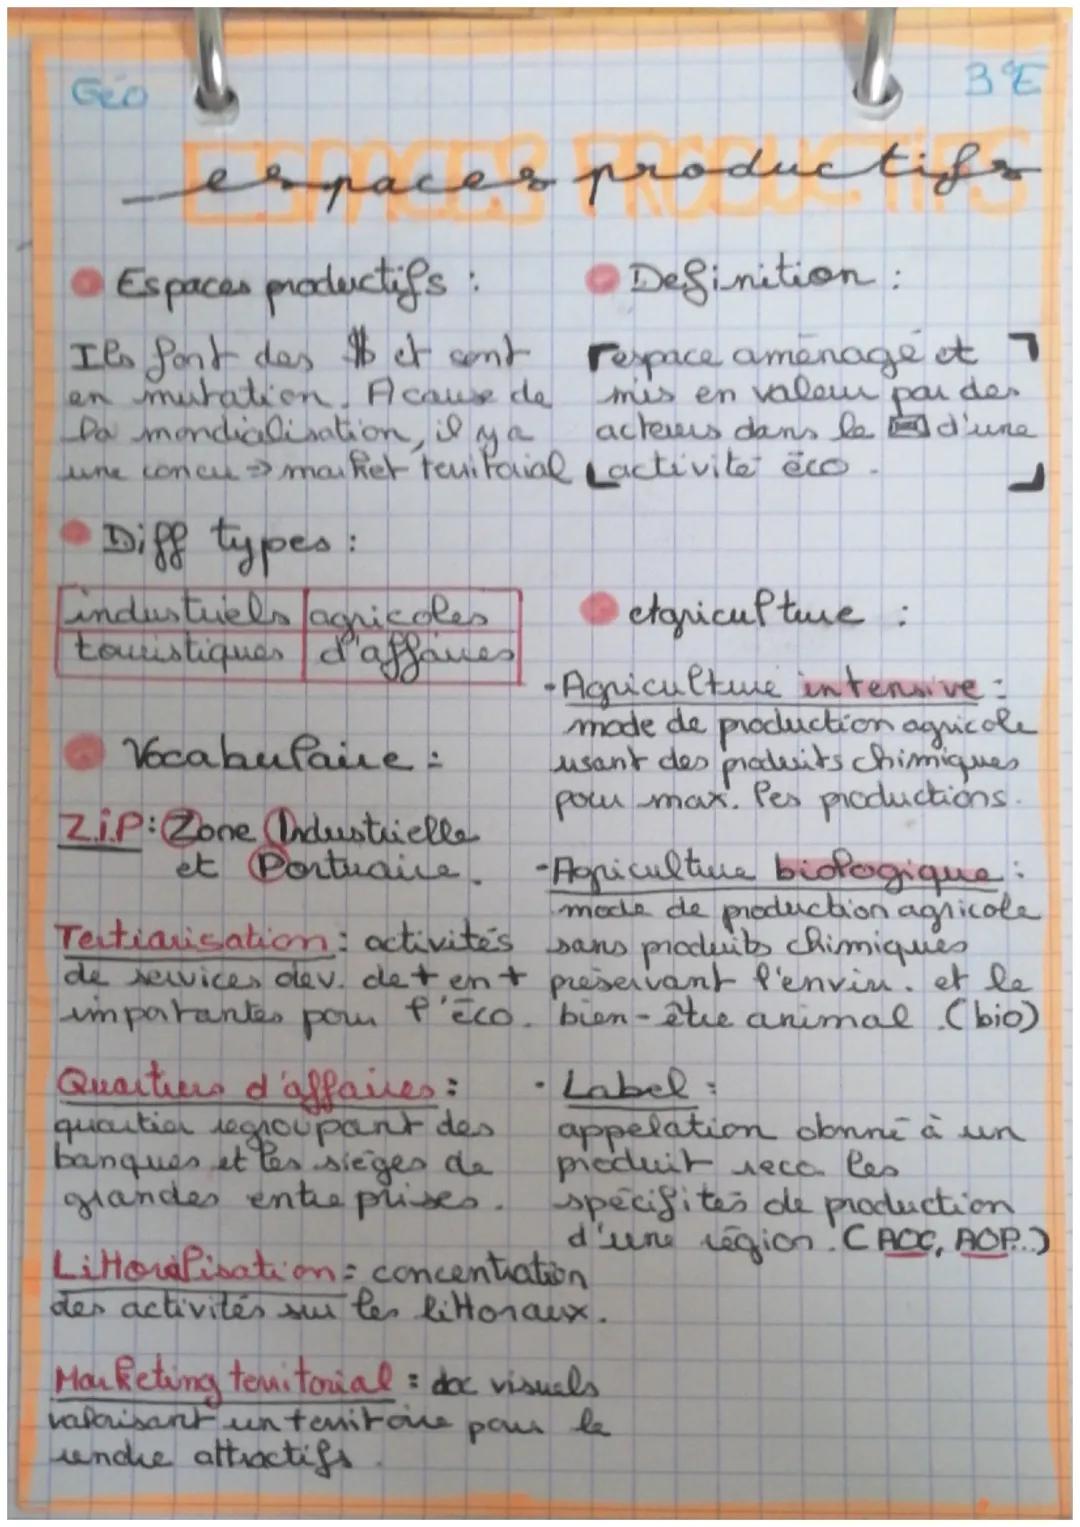 Géo
3°E
ESPACES PRODUCTIFS
espaces productifs
Espaces productifs :
Ils font des $ et sont
en mutation. A cause de
la mondialisation, il y a
une concu ⇒ market territorial
Définition :
espace aménagé et
mis en valeur par des
acteurs dans le d'une
activité éco.
Diff types :
industriels agricoles
touristiques d'affaires
Vocabulaire :
Z.i.P : Zone Industrielle
et Portuaire.
Tertiarisation : activités
de services dev. de + en +
importantes pour l'éco.
Quartiers d'affaires :
quartier regroupant des
banques et les sièges de
grandes entreprises.
Littoralisation : concentration
des activités sur les littoraux.
Marketing territorial : doc visuels
valorisant un territoire pour le
rendre attractifs.
agriculture :
- Agriculture intensive :
mode de production agricole
usant des produits chimiques
pour max. les productions.
- Agriculture biologique :
mode de production agricole
sans produits chimiques
préservant l'envir. et le
bien-être animal. (bio)
- Label :
appelation donné à un
produit reco. les
spécifités de production
d'une région. (AOC, AOP...)